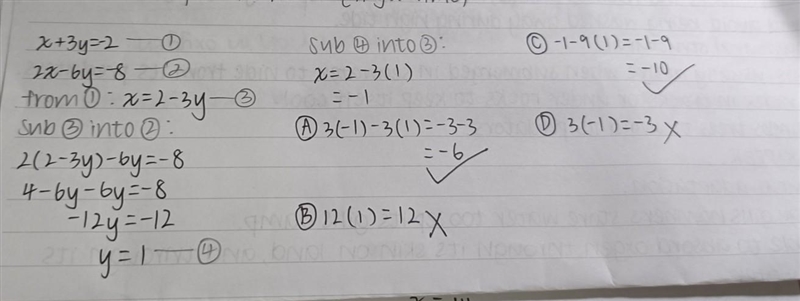 x+3y=2 — ①
2x-6y=-8 — ②
from ①: x=2-3y — ③
sub ③ into ②:
2(2-3y)-6y=-8
4-6y-6y=-8
-12y=-12
y=1 — ④
sub ④ into ③:
x=2-3(1)
=-1
Ⓐ 3(-1)-3(1)=-3-3
=-6 ✓
Ⓑ 12(1)=12 X
Ⓒ -1-9(1)=-1-9
=-10 ✓
Ⓓ 3(-1)=-3 X